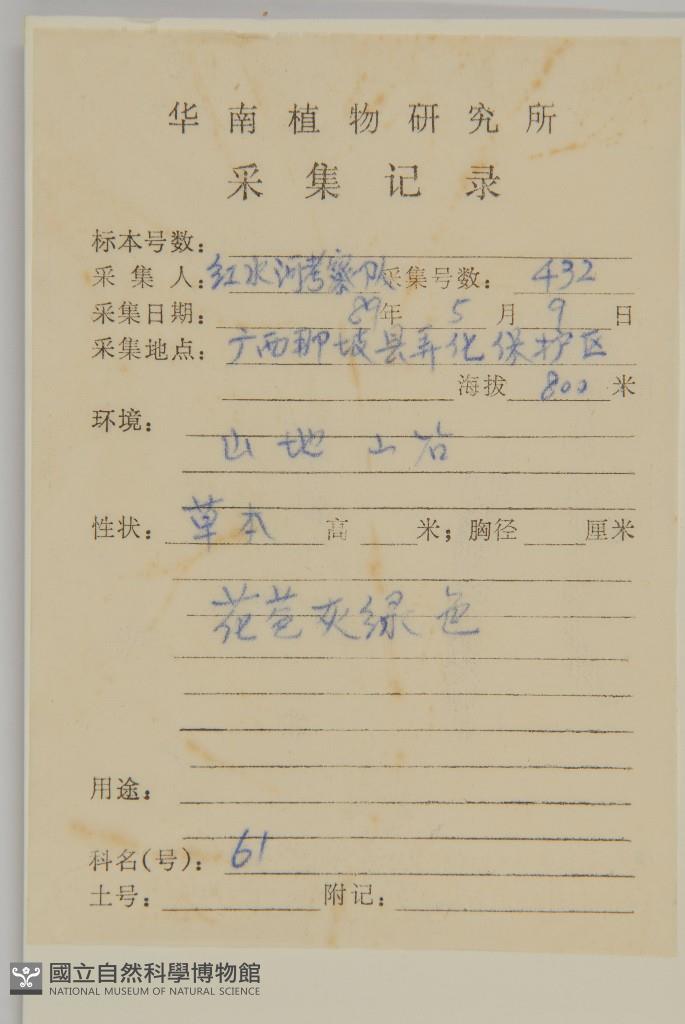 华南植物研究所
采集记录
标本号数：
采集人：红水河考察队 采集号数：432
采集日期：89年5月9日
采集地点：广西那坡县弄化保护区
海拔800米
环境：
山地 山谷
性状：草本 高 米；胸径 厘米
花苞灰绿色
用途：
科名(号)：61
土号： 附记：
國立自然科學博物館
NATIONAL MUSEUM OF NATURAL SCIENCE